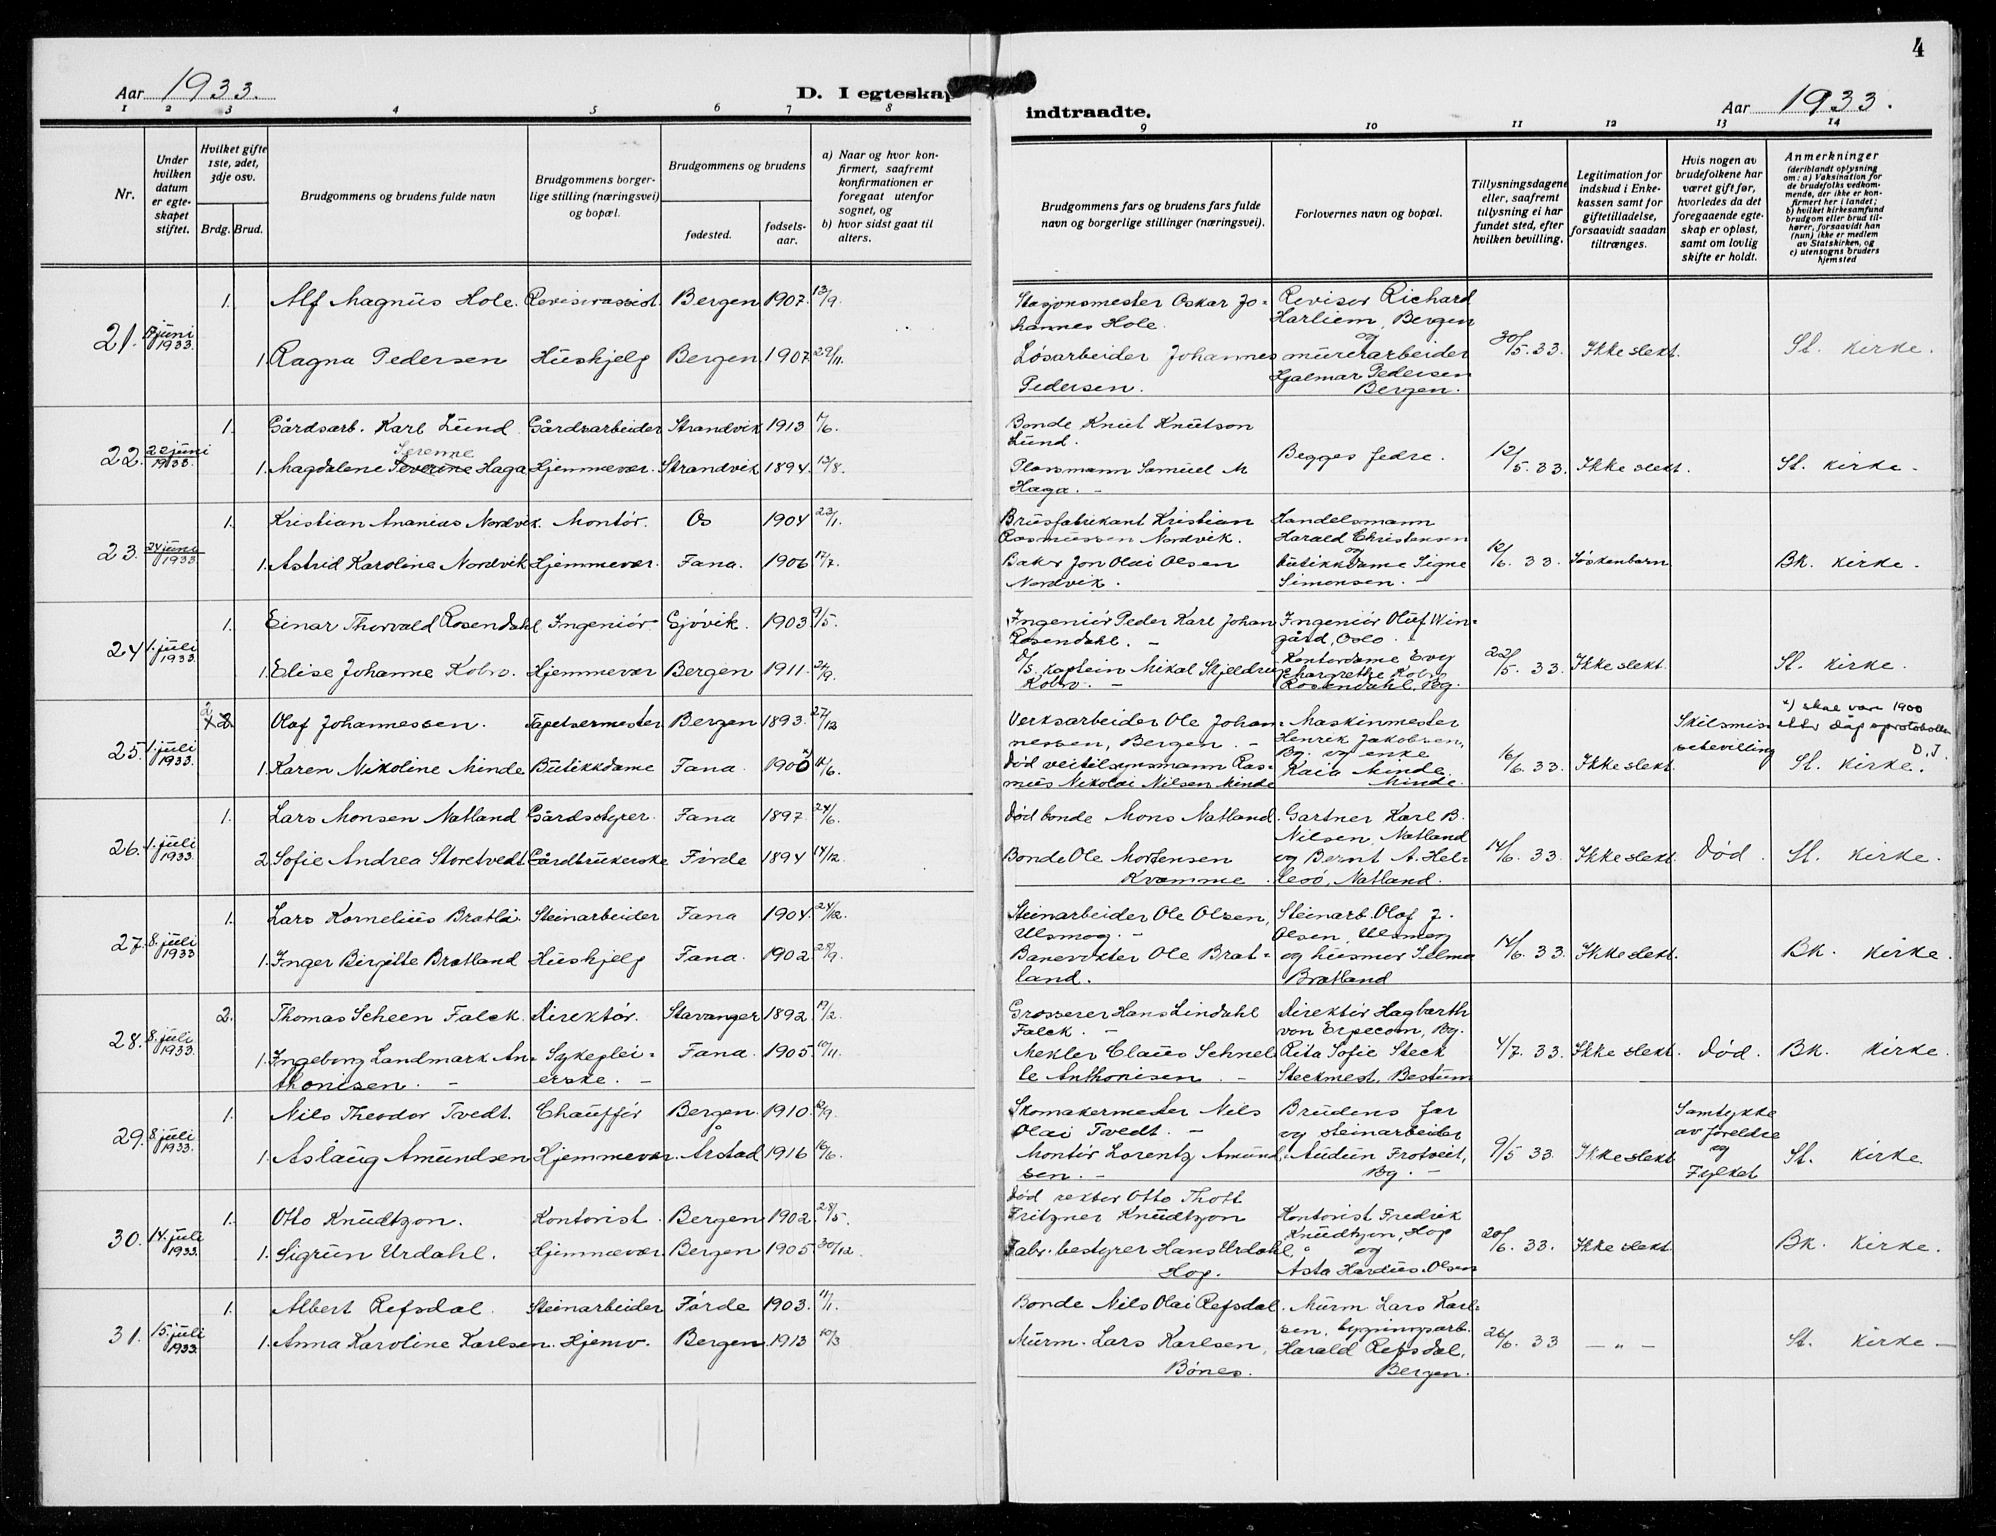 4
Aar 1933. D. I egteskap indtraadte. Aar 1933.
1 2 3 4 5 6 7 8 9 10 11 12 13 14
Nr.
Under hvilken datum er egteskapet stiftet.
Hvilket gifte 1ste, 2det, 3dje osv.
Brdg. Brud.
Brudgommens og brudens fulde navn
Brudgommens borgerlige stilling (næringsvei) og bopæl.
Brudgommens og brudens
fødested. fødselsaar.
a) Naar og hvor konfirmert, saafremt konfirmationen er foregaat utenfor sognet, og
b) hvor sidst gaat til alters.
Brudgommens fars og brudens fars fulde navn og borgerlige stillinger (næringsvei).
Forlovernes navn og bopæl.
Tillysningsdagene eller, saafremt tillysning ei har fundet sted, efter hvilken bevilling.
Legitimation for indskud i Enkekassen samt for giftetilladelse, forsaavidt saadan tiltrænges.
Hvis nogen av brudefolkene har været gift før, hvorledes da det foregaaende egteskap er opløst, samt om lovlig skifte er holdt.
Anmerkninger (deriblandt oplysning om: a) Vaksination for de brudefolks vedkommende, der ikke er konfirmert her i landet; b) hvilket kirkesamfund brudgom eller brud tilhører, forsaavidt han (hun) ikke er medlem av Statskirken, og c) utensogns bruders hjemsted
21. juni 1933.
1. Alf Magnus Hole. Revisorassist. Bergen 1907. 13/9.
1. Ragna Pedersen Hushjelp Bergen 1907 29/11.
Stasjonsmester Oskar Johannes Hole.
Løsarbeider Johannes Pedersen.
Revisor Richard Harliem, Bergen og murerarbeider Hjalmar Pedersen Bergen.
30/5. 33. Ikke slekt. St. kirke.
22. 22 juni 1933.
1. Gårdsarb. Karl Lund Gårdsarbeider Strandvik 1913 /6.
1. Magdalene Severine Haga Hjemmevær. Strandvik 1894. 13/8.
Serenne
Bonde Knut Knutson Lund.
Plassmann Samuel M Haga. -
Begges fedre.
12/5. 33. Ikke slekt. St. kirke.
23. 24 juni 1933
1. Kristian Ananias Nordvik. Montør. Os 1904 23/1.
1. Astrid Karoline Nordvik Hjemmevær. Fana. 1906 17/7.
Brusfabrikant Kristian Rasmussen Nordvik.
Baker Jon Olai Olsen Nordvik.
Handelsmann Harald Christensen og butikkdame Signe Simonsen.
12/6. 33. Søskenbarn Bk. kirke.
24. 1. juli 1933.
1. Einar Thorvald Rosendahl Ingeniør Gjøvik. 1903. 9/5.
1. Elise Johanne Kobro. Hjemmevær Bergen 1911. /9.
Ingeniør Peder Karl Johan Rosendahl. -
D/S. kaptein Mikal Skjeldrup Kobro. -
Ingeniør Oluf Wingård, Oslo.
Kontordame Evy Margrethe Kobro Rosendahl, Bg.
22/5. 33. Ikke slekt. St. kirke.
25. 1. juli 1933.
2 Olaf Johannessen. Tapetsermester Bergen 1893. 27/12
1. Karen Nikoline Minde Butikkdame Fana 1900 x) /6.
Verksarbeider Ole Johannessen, Bergen. -
Død veitilsynsmann Rasmus Nikolai Nilsen Minde
Maskinmester Henrik Jakobsen, Bg. og enke Kaia Minde Minde.
16/6. 33. Ikke slekt. Skilsmissebevilling
x) skal være 1900 etter dåpsprotokollen D. J.
St. kirke.
26. 1. juli 1933.
1. Lars Monsen Natland Gårdstyrer. Fana 1897. 24/6.
2. Sofie Andrea Storetvedt Gårdbrukerske Førde 1894 14/12.
Død bonde Mons Natland.
Bonde Ole Mortensen Kvamme.
Gartner Karl B. Nilsen, Natland og Bernt A. Hellesø, Natland.
14/6. 33. Ikke slekt. Død. St. kirke.
27. 8. juli 1933
1. Lars Kornelius Bratlii Steinarbeider Fana 1904. 24/12.
1. Inger Birgitte Bratland Hushjelp Fana. 1902. 28/9.
Steinarbeider Ole Olsen, Ulsmog. -
Banevokter Ole Bratland.
Steinarb. Olaf J. Olsen, Ulsmog og husmor Selma Bratland
14/6. 33. Ikke slekt. Bk. kirke.
28. 8. juli 1933.
2. Thomas Scheen Falck. Direktør. Stavanger 1892. 19/2.
1. Ingeborg Landmark Anthonisen. - Sykepleierske. - Fana. 1905. 10/11.
Grosserer Hans Lindahl Falck. -
Mekler Claus Schnelle Anthonisen. -
Direktør Hagbarth von Erpecom, Bg.
Rita Sofie Steck Steckmest, Bestum
4/7. 33. Ikke slekt. Død. Bk. kirke.
29. 8. juli 1933.
1. Nils Theodor Tvedt. Chauffør Bergen. 1910. /9.
1. Aslaug Amundsen Hjemmevær. Årstad 1916 16/6.
Skomakermester Nils Olai Tvedt. -
Montør Lorentz Amundsen. -
Brudens far og steinarbeider Audun Frotveit, Bg. -
9/5 33. Ikke slekt Samtykke av foreldre og Fylket St. kirke.
30. 14. juli 1933.
1. Otto Knudtzon. Kontorist. Bergen 1902. 28/5.
1. Sigrun Urdahl. Hjemmevær Bergen 1905. 30/12.
Død rektor Otto Thott Fritzner Knudtzon
Fabr. bestyrer Hans Urdahl, Hop.
Kontorist Fredrik Knudtzon, Hop og Asta Hardus-Olsen
20/6. 33. Ikke slekt. Bk. kirke.
31. 15. juli 1933.
1. Albert Refsdal. Steinarbeider Førde 1903. 11/1.
1. Anna Karoline Karlsen. Hjemv. Bergen. 1913 10/3
Bonde Nils Olai Refsdal.
Murm. Lars Karlsen, Bønes.
Murm. Lars Karlsen, bygningsarb. Harald Refsdal, Bergen.
26/6. 33 - " - St. kirke -